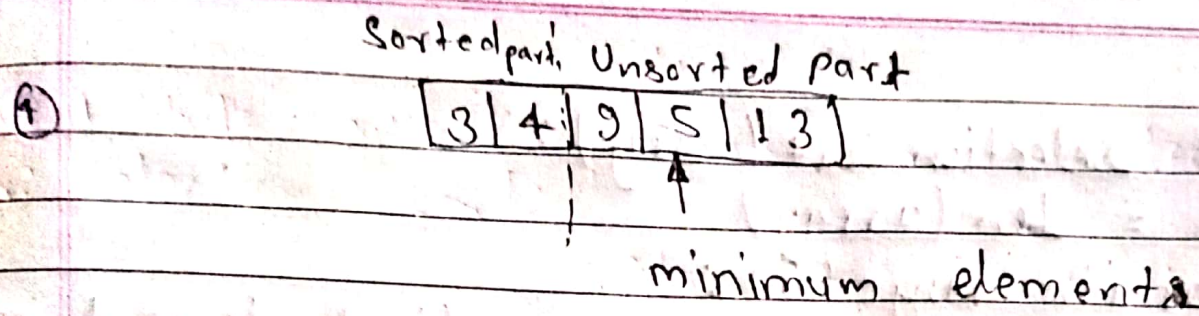 Sorted part Unsorted part
④ 3 | 4 | 9 | 5 | 13
minimum elements